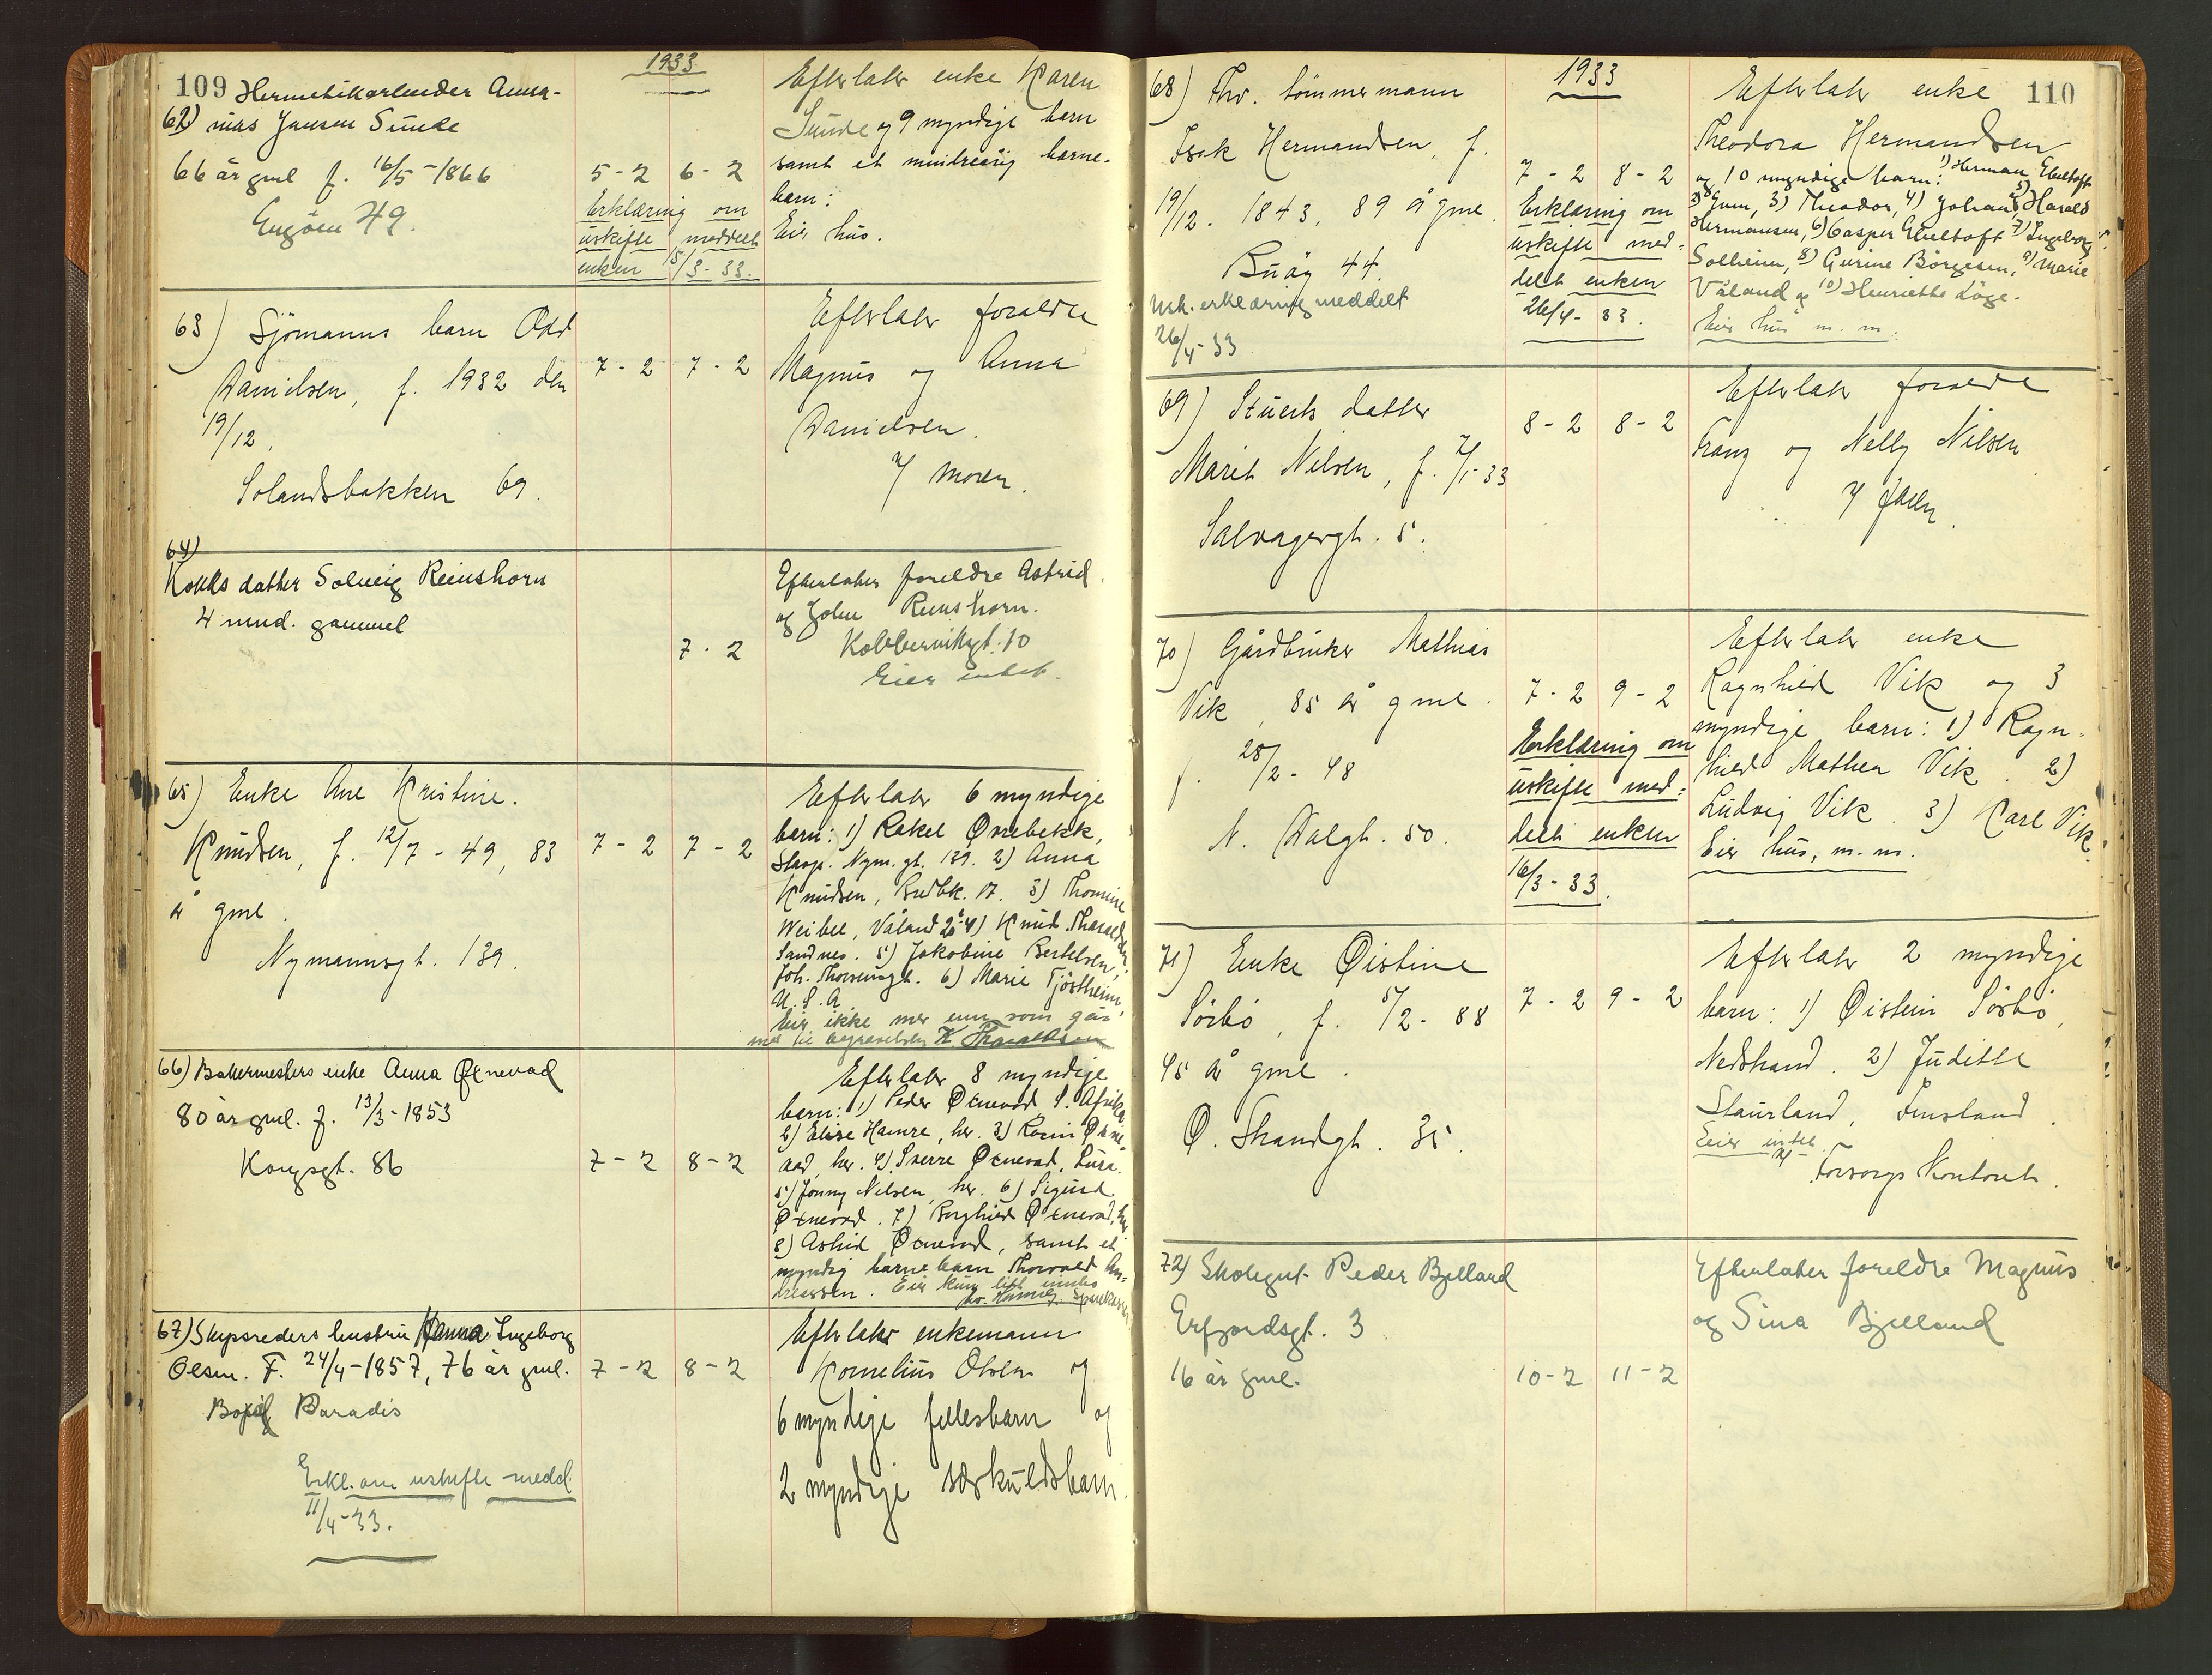 109
1933
Hermetikarbeider Anna-
62) nias Jansen Sunde
66 år gml f. 16/5-1866
Engöen 49.
5-2 6-2
Erklæring om
uskifte meddelt
enken 15/3-33.
Efterlater enke Karen
Sunde og 9 myndige barn
samt et mindreårig barne-
barn:
Eier hus.
63) Sjömanns barn Odd
Danielsen, f. 1932 den
19/12,
Solandsbakken 69.
7-2 7-2
Efterlater foreldre
Magnus og Anna
Danielsen.
moren.
64)
Kokks datter Solveig Reinshorn
4 mnd. gammel
7-2
Efterlater foreldre Astrid
og John Reinshorn.
Kobbervikgt. 10
Eier intet.
65) Enke Ane Kristine
Knudsen, f. 12/7-49, 83
år gml.
Nymannsgt. 139.
7-2 7-2
Efterlater 6 myndige
barn: 1) Rakel Øvrebekk,
Nym. gt. 139. 2) Anna
Knudsen, 17. 3) Thomine
Weibel, Våland 4) Knud Tharaldsen
Sandnes. 5) Jakobine Bertelsen,
Joh. Thorsensgt. 6) Marie Tjöstheim
U.S.A.
Eier ikke mer enn som går
med til begravelsen K. Tharaldsen
66) Bakermesters enke Anna Øxnevad
80 år gml. f. 13/3-1853
Kongsgt. 86
7-2 8-2
Efterlater 8 myndige
barn: 1) Peder Øxnevad S. Afrika
2) Elise Hamre, her. 3) Øxne-
vad, her. 4) Sverre Øxnevad, Lura.
5) Jonny Nilsen, her. 6) Sigurd
Øxnevad. 7) Borghild Øxnevad, her
8) Astrid Øxnevad, samt et
myndig barnebarn Thorvald An-
dreassen. Eier kun litt innbo
67) Skipsreders hustru Hanna Ingeborg
Olsen. F. 24/4-1857, 76 år gml.
Paradis
Erkl. om uskifte medd.
11/4-33.
7-2 8-2
Efterlater enkemann
Kornelius Olsen og
6 myndige fellesbarn og
2 myndige særkuldsbarn.
110
1933
68) Fhv. tömmermann
Isak Hermandsen, f.
19/12. 1843, 89 år gml.
Buöy 44.
Usk. erklæring meddelt
26/4-33
7-2 8-2
Erklæring om
uskifte med-
delt enken
26/4-33.
Efterlater enke
Theodora Hermandsen
og 10 myndige barn: 1) Herman Ebeltoft
2) 3) Theodor, 4) Johan, 5) Harald
Hermansen, 6) Casper Ebeltoft 7) Ingeborg
Solheim, 8) Gurine Börgesen, 9) Marie
Våland og 10) Henriette Löge.
Eier hus m. m.
69) Stuerts datter
Marit Nilsen, f. 7/1-33
Salvagergt. 5.
8-2 8-2
Efterlater foreldre
Franz og Nelly Nilsen
faren.
70) Gårdbruker Mathias
Vik, 85 år gml.
f. 28/2-48
N. Dalgt. 50.
7-2 9-2
Erklæring om
uskifte med-
delt enken
16/3-33.
Efterlater enke
Ragnhild Vik og 3
myndige barn: 1) Ragn-
hild Mathea Vik. 2)
Ludvig Vik. 3) Karl Vik.
Eier hus, m. m.
71) Enke Øistine
Sörbö, f. 5/2-88
45 år gml.
Ø. Strandgt. 35.
7-2 9-2
Efterlater 2 myndige
barn: 1) Øistein Sörbö,
Nedstrand. 2) Judith
Staurland, Finsland.
Eier intet
Forsorgskontoret.
72) Skolegut Peder Bjelland
Erfjordsgt. 3
16 år gml.
10-2 11-2
Efterlater foreldre Magnus
og Sina Bjelland